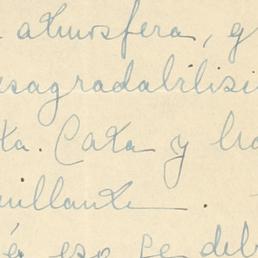 atmosfera, q
esagradabilisi
ta. Cata y ha
uillante.
és eso se deb